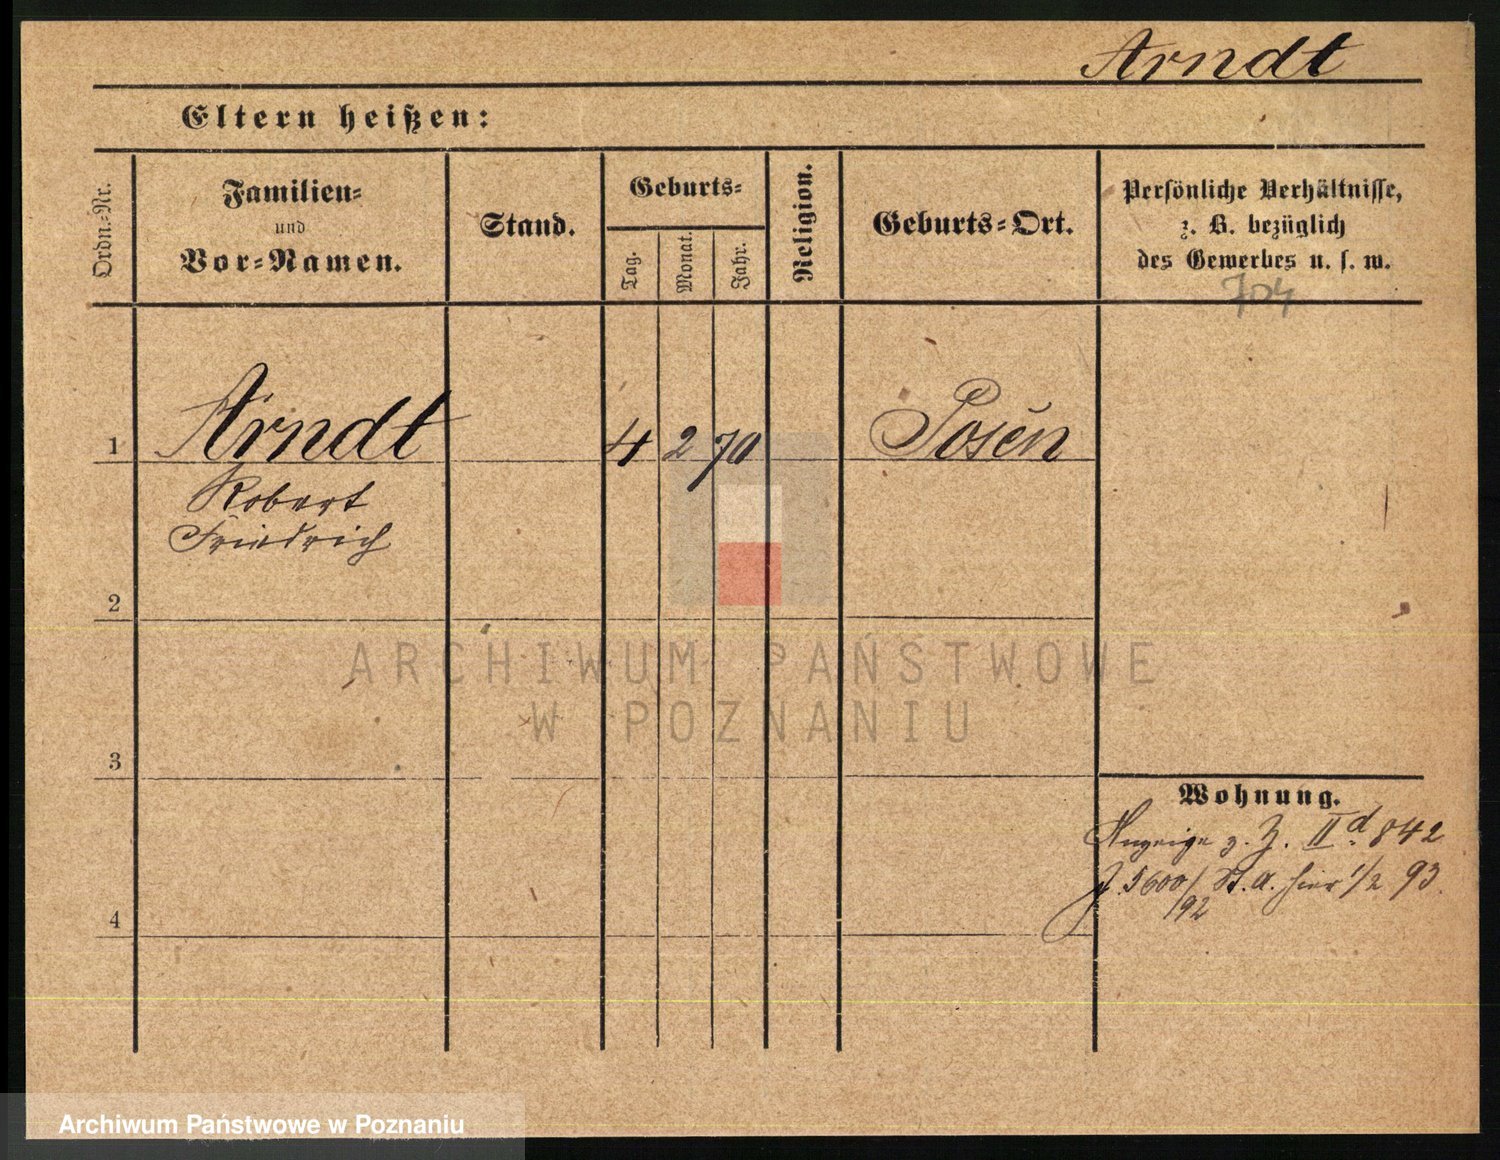 Arndt
Eltern heißen:
Ordn.-Nr.
Familien-
und
Vor-Namen.
Stand.
Geburts-
Tag.
Monat.
Jahr.
Religion.
Geburts-Ort.
Persönliche Verhältnisse,
z. B. bezüglich
des Gewerbes u. s. w.
704
1
Arndt
4 2 70
Posen
Robert
Friedrich
2
ARCHIWUM PAŃSTWOWE
W POZNANIU
3
Wohnung.
Anzeige z. J. II d. 842
J. 5600/92 St. A. hier 1/2 93.
4
Archiwum Państwowe w Poznaniu